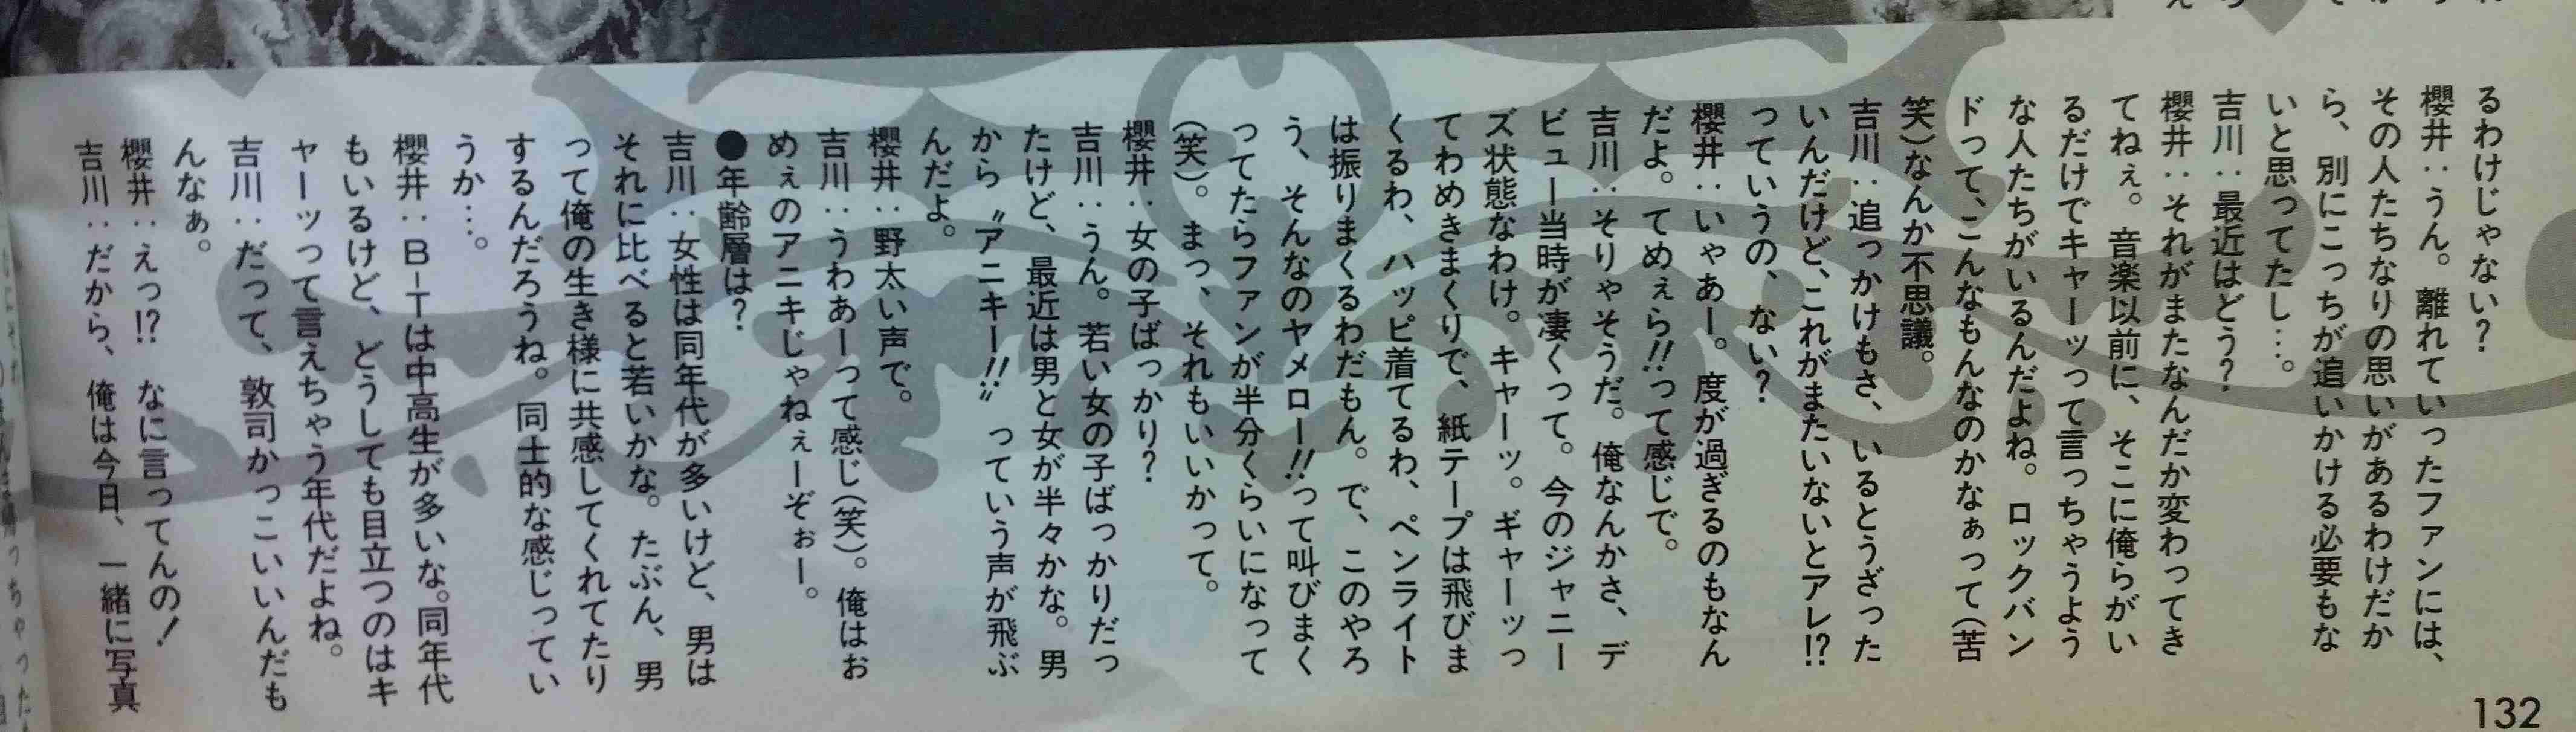 るわけじゃない?
櫻井：うん。離れていったファンには、
その人たちなりの思いがあるわけだか
ら、別にこっちが追いかける必要もな
いと思ってたし…。
吉川：最近はどう?
櫻井：それがまたなんだか変わってき
てねぇ。音楽以前に、そこに俺らがい
るだけでキャーッって言っちゃうよう
な人たちがいるんだよね。ロックバン
ドって、こんなもんなのかなぁって(苦
笑)なんか不思議。
吉川：追っかけもさ、いるとうざった
いんだけど、これがまたいないとアレ!?
っていうの、ない?
櫻井：いゃあー。度が過ぎるのもなん
だよ。てめぇら!!って感じで。
吉川：そりゃそうだ。俺なんかさ、デ
ビュー当時が凄くって。今のジャニー
ズ状態なわけ。キャーッ。ギャーッっ
てわめきまくりで、紙テープは飛びま
くるわ、ハッピ着てるわ、ペンライト
は振りまくるわだもん。で、このやろ
う、そんなのヤメロー!!って叫びまく
ってたらファンが半分くらいになって
(笑)。まっ、それもいいかって。
櫻井：女の子ばっかり?
吉川：うん。若い女の子ばっかりだっ
たけど、最近は男と女が半々かな。男
から〝アニキー!!〟っていう声が飛ぶ
んだよ。
櫻井：野太い声で。
吉川：うわあーって感じ(笑)。俺はお
めぇのアニキじゃねぇーぞぉー。
●年齢層は?
吉川：女性は同年代が多いけど、男は
それに比べると若いかな。たぶん、男
って俺の生き様に共感してくれてたり
するんだろうね。同士的な感じってい
うか…。
櫻井：B-Tは中高生が多いな。同年代
もいるけど、どうしても目立つのはキ
ャーッって言えちゃう年代だよね。
吉川：だって、敦司かっこいいんだも
んなぁ。
櫻井：えっ!?　なに言ってんの!
吉川：だから、俺は今日、一緒に写真
132